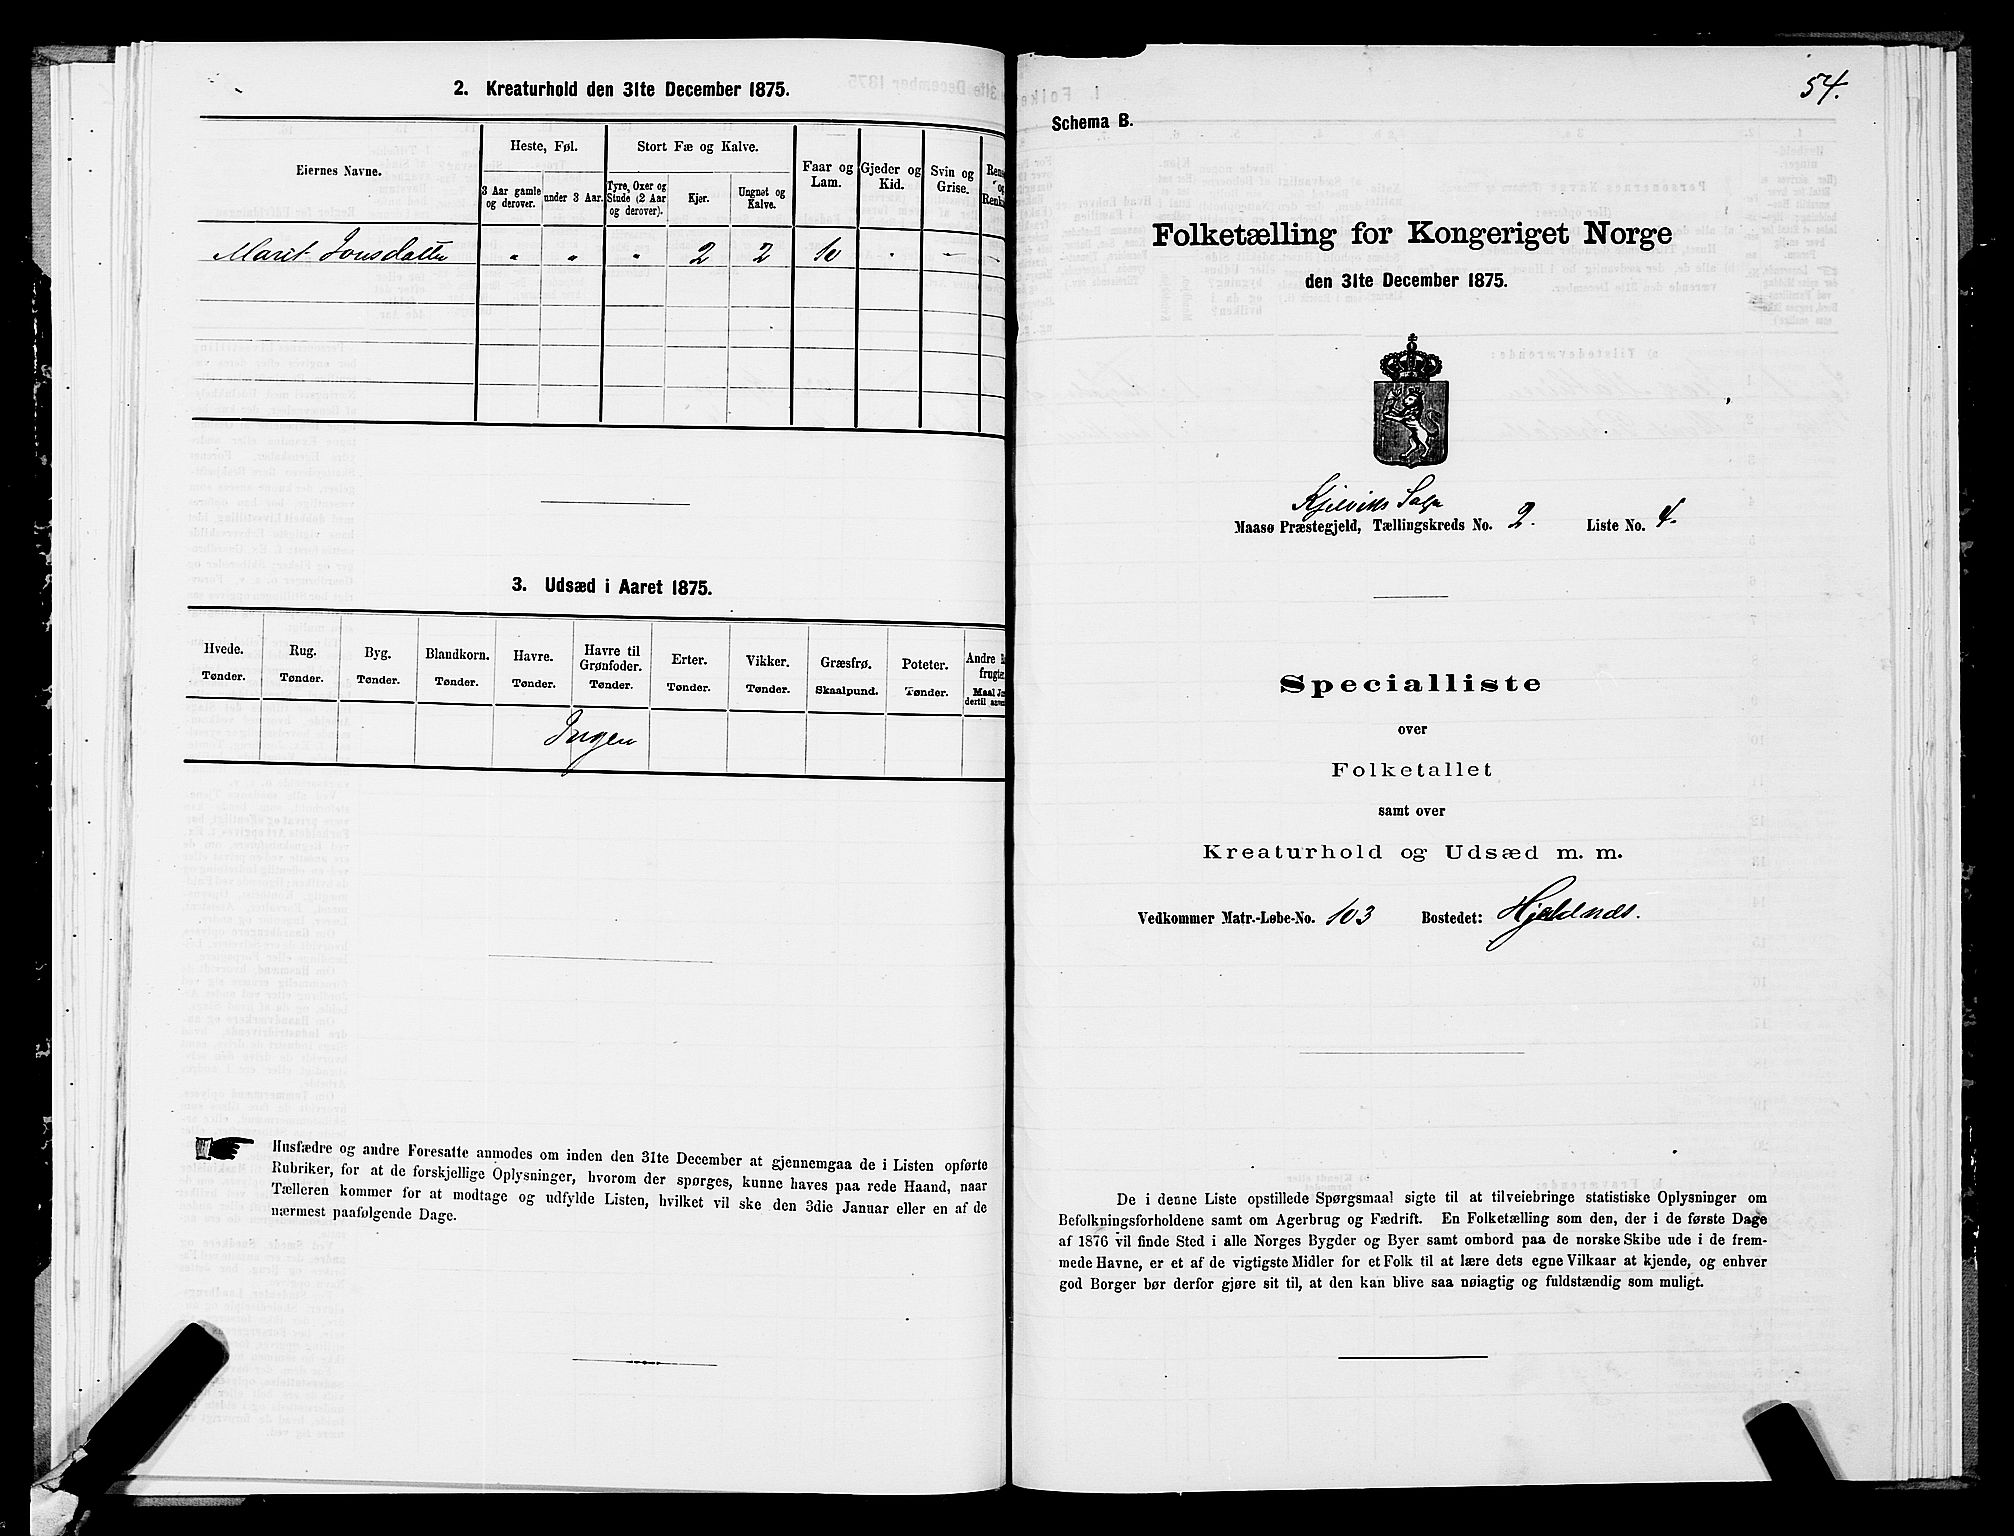 2. Kreaturhold den 31te December 1875.
Eiernes Navne.
Heste, Føl.
Stort Fæ og Kalve.
Faar og Lam.
Gjeder og Kid.
Svin og Grise.
3 Aar gamle og derover.
under 3 Aar.
Tyre, Oxer og Stude (2 Aar og derover).
Kjør.
Ungnøt og Kalve.
Marit Jonsdatter " " " 2 2 10 . - -
3. Udsæd i Aaret 1875.
Hvede. Rug. Byg. Blandkorn. Havre. Havre til Grønfoder. Erter. Vikker. Græsfrø. Poteter.
Tønder. Tønder. Tønder. Tønder. Tønder. Tønder. Tønder. Tønder. Skaalpund. Tønder.
Ingen
Husfædre og andre Foresatte anmodes om inden den 31te December at gjennemgaa de i Listen opførte
Rubriker, for at de forskjellige Oplysninger, hvorom der spørges, kunne haves paa rede Haand, naar
Tælleren kommer for at modtage og udfylde Listen, hvilket vil ske den 3die Januar eller en af de
nærmest paafølgende Dage.
54.
Schema B.
Folketælling for Kongeriget Norge
den 31te December 1875.
Kjelviks Sogn
Maasø Præstegjeld, Tællingskreds No. 2. Liste No. 4.
Specialliste
over
Folketallet
samt over
Kreaturhold og Udsæd m. m.
Vedkommer Matr.-Løbe-No. 103 Bostedet: Hjeldnæs.
De i denne Liste opstillede Spørgsmaal sigte til at tilveiebringe statistiske Oplysninger om
Befolkningsforholdene samt om Agerbrug og Fædrift. En Folketælling som den, der i de første Dage
af 1876 vil finde Sted i alle Norges Bygder og Byer samt ombord paa de norske Skibe ude i de frem-
mede Havne, er et af de vigtigste Midler for et Folk til at lære dets egne Vilkaar at kjende, og enhver
god Borger bør derfor gjøre sit til, at den kan blive saa nøiagtig og fuldstændig som muligt.